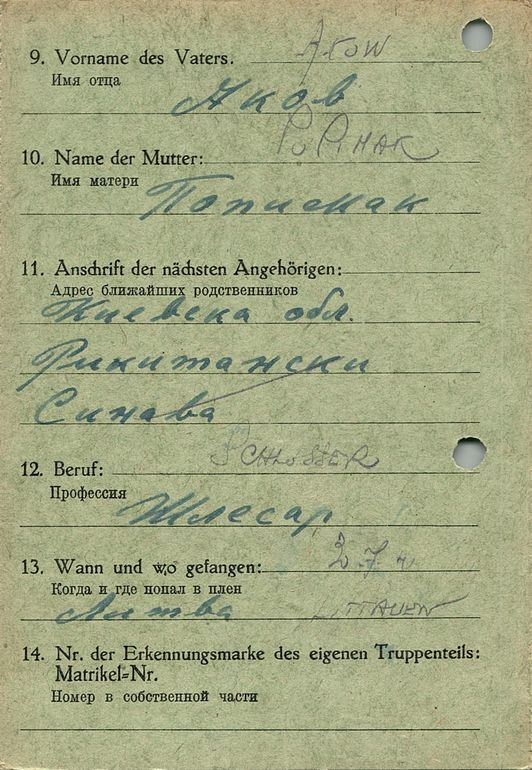 9. Vorname des Vaters. Akow
Имя отца
Яков
PoPiHAK
10. Name der Mutter:
Имя матери
Попимак
11. Anschrift der nächsten Angehörigen:
Адрес ближайших родственников
Киевска обл.
Рикитански
Синава
SCHLOSSER
12. Beruf:
Профессия
Шлесар
13. Wann und wo gefangen:
Когда и где попал в плен
Литва LITTAUEN
14. Nr. der Erkennungsmarke des eigenen Truppenteils:
Matrikel-Nr.
Номер в собственной части